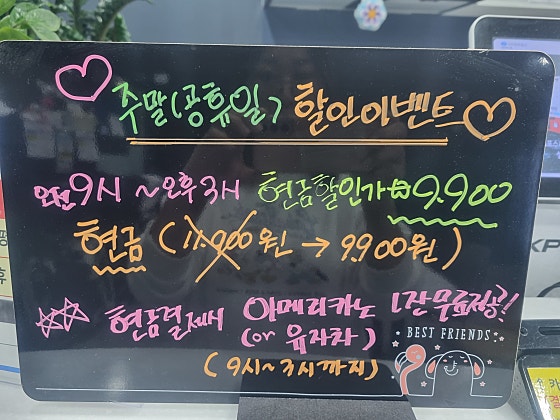 주말(공휴일) 할인이벤트
오전9시 ~오후3시 현금할인가 ₩9.900
현금 (11.900원 → 9.900원)
현금결제시 아메리카노 1잔 무료제공!!
(or 유자차)
(9시~3시까지)
BEST FRIENDS